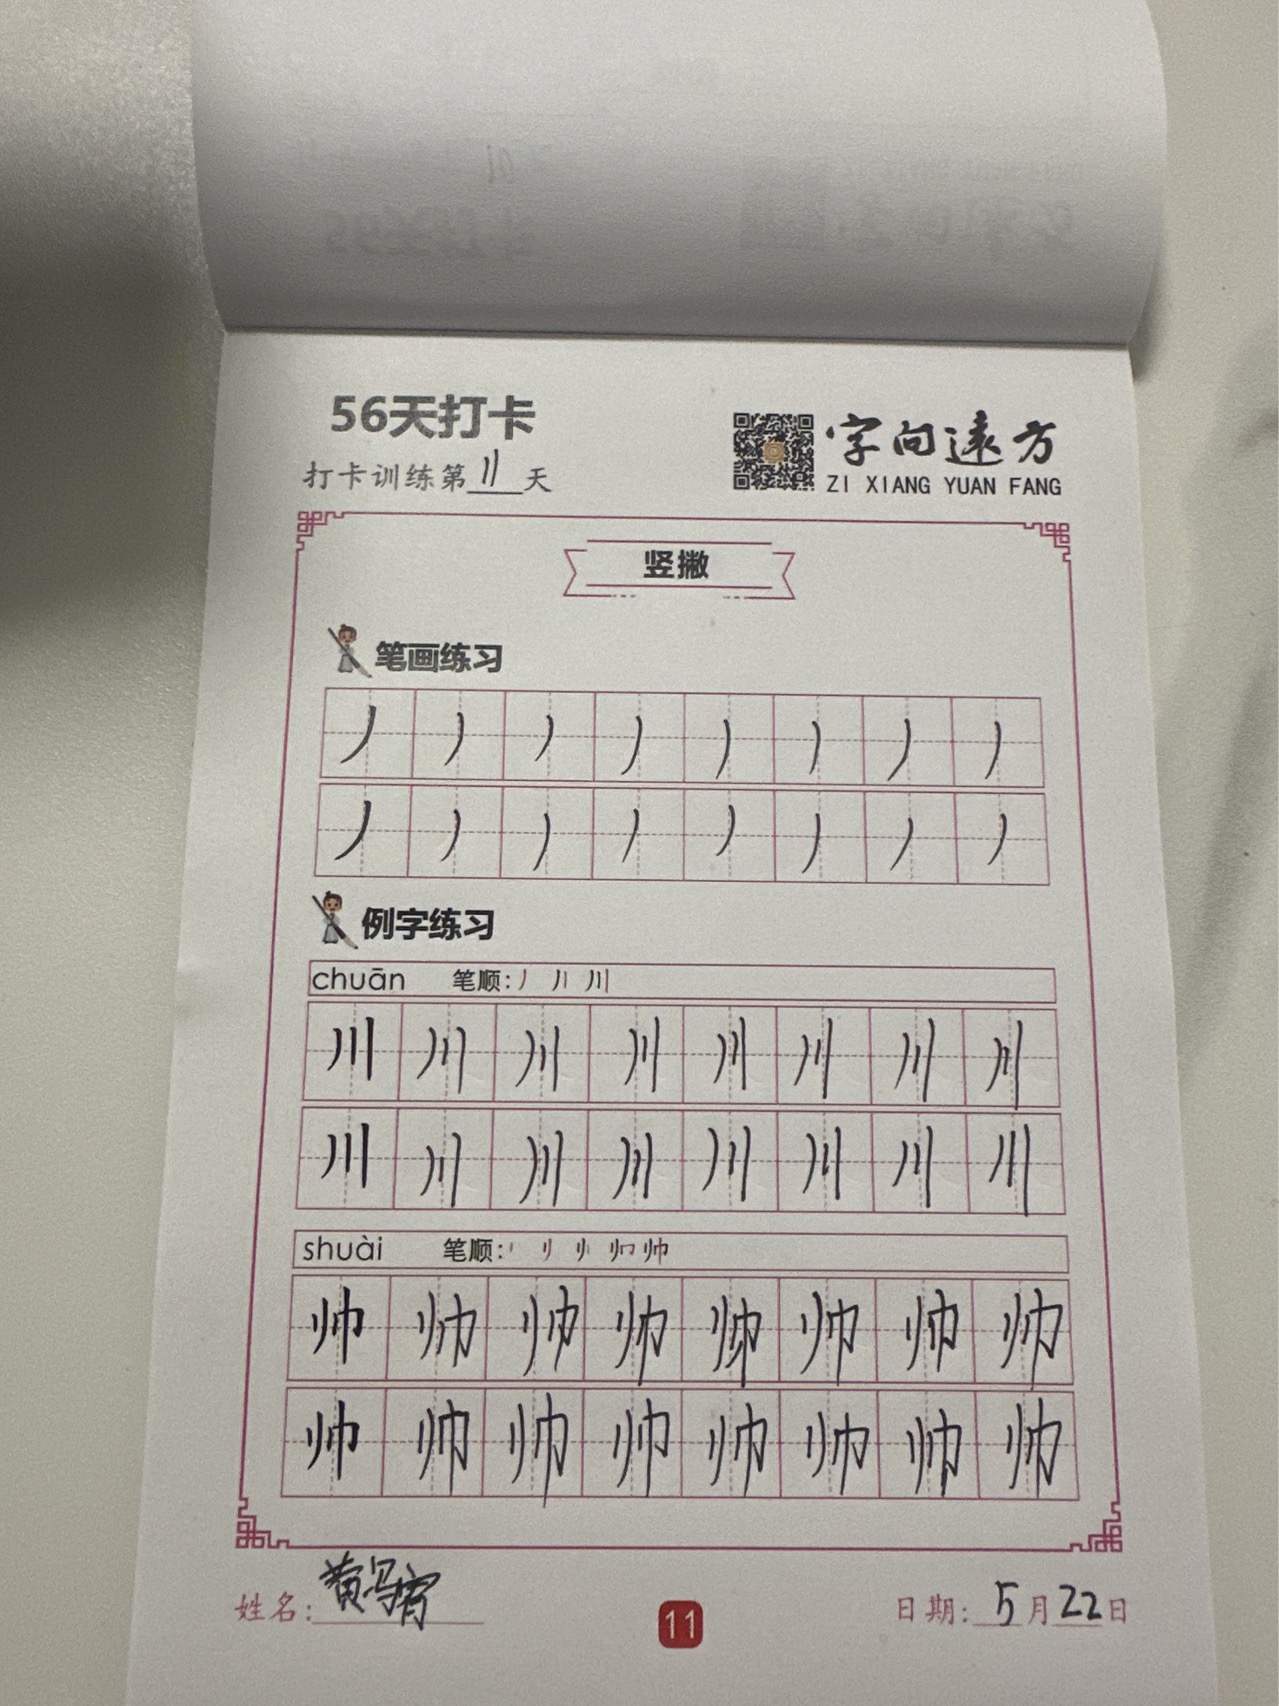 56天打卡
字向遠方
打卡训练第11天
ZI XIANG YUAN FANG
竖撇
笔画练习
丿丿丿丿丿丿丿丿
丿丿丿丿丿丿丿丿
例字练习
chuān 笔顺: 丿 丿丨 川
川川川川川川川川
川川川川川川川川
shuài 笔顺:
帅帅帅帅帅帅帅帅
帅帅帅帅帅帅帅帅
姓名:
11
日期: 5月22日